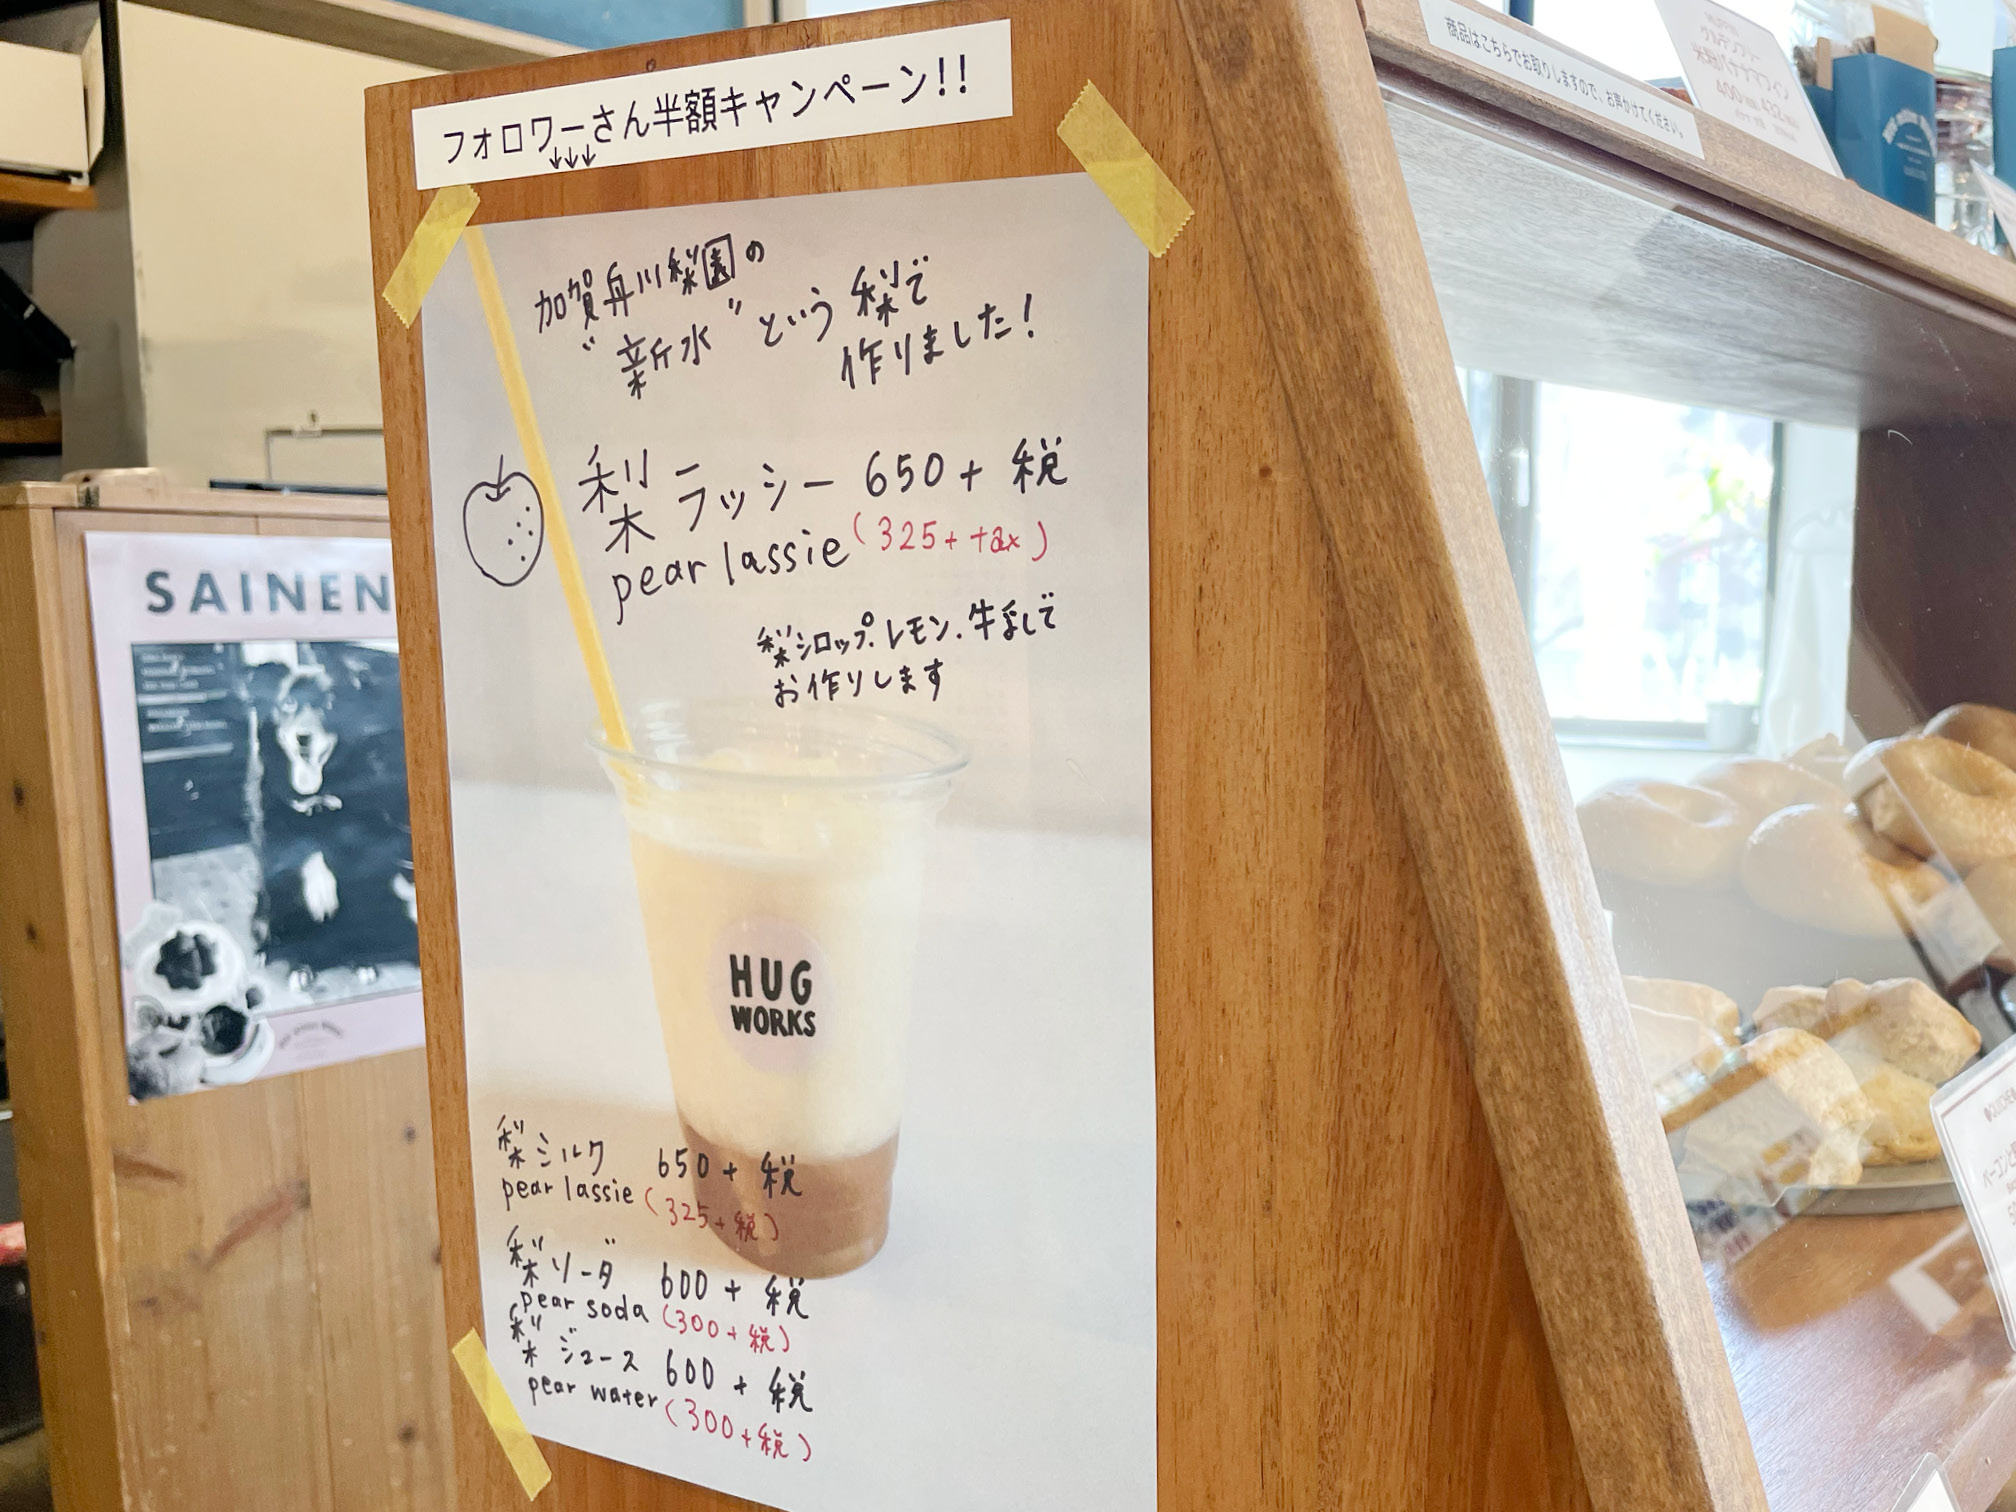 フォロワーさん半額キャンペーン!!
↓↓↓
加賀舟川梨園の
〝新水〟という梨で
作りました!
梨ラッシー 650+税
pear lassie (325+tax)
梨シロップ、レモン、牛乳で
お作りします
HUG
WORKS
梨ミルク 650+税
pear lassie (325+税)
梨ソーダ 600+税
pear soda (300+税)
梨ジュース 600+税
pear water (300+税)
SAINEN
商品はこちらでお取りしますので、お声かけてください。